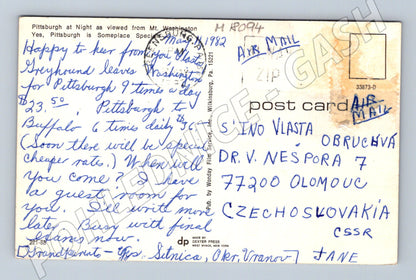 Pittsburgh at Night as viewed from Mt. Washington
Yes, Pittsburgh is Someplace Special
May 11, 1982
M 18094
AIR MAIL
Happy to hear from you Vlasta
Greyhound leaves Washington
for Pittsburgh 9 times a day
$23.50. Pittsburgh to
Buffalo 6 times daily
(Soon there will be special
cheaper rates.) When will
you come? I have
a guest room for
you. I'll write more
later. Busy with final
exams now.
Grandparents - Mrs. Silnica, Okr. Vranov
JANE
Pub. by Wonday Film Service, Inc., Wilkinsburg, Pa. 15221
33873-D
post card
AIR
MAIL
S'INO VLASTA
OBRUCHVÁ
DR. V. NEŠPORA 7
77200 OLOMOUC
CZECHOSLOVAKIA
CSSR
dp
MADE BY
DEXTER PRESS
WEST NYACK, NEW YORK